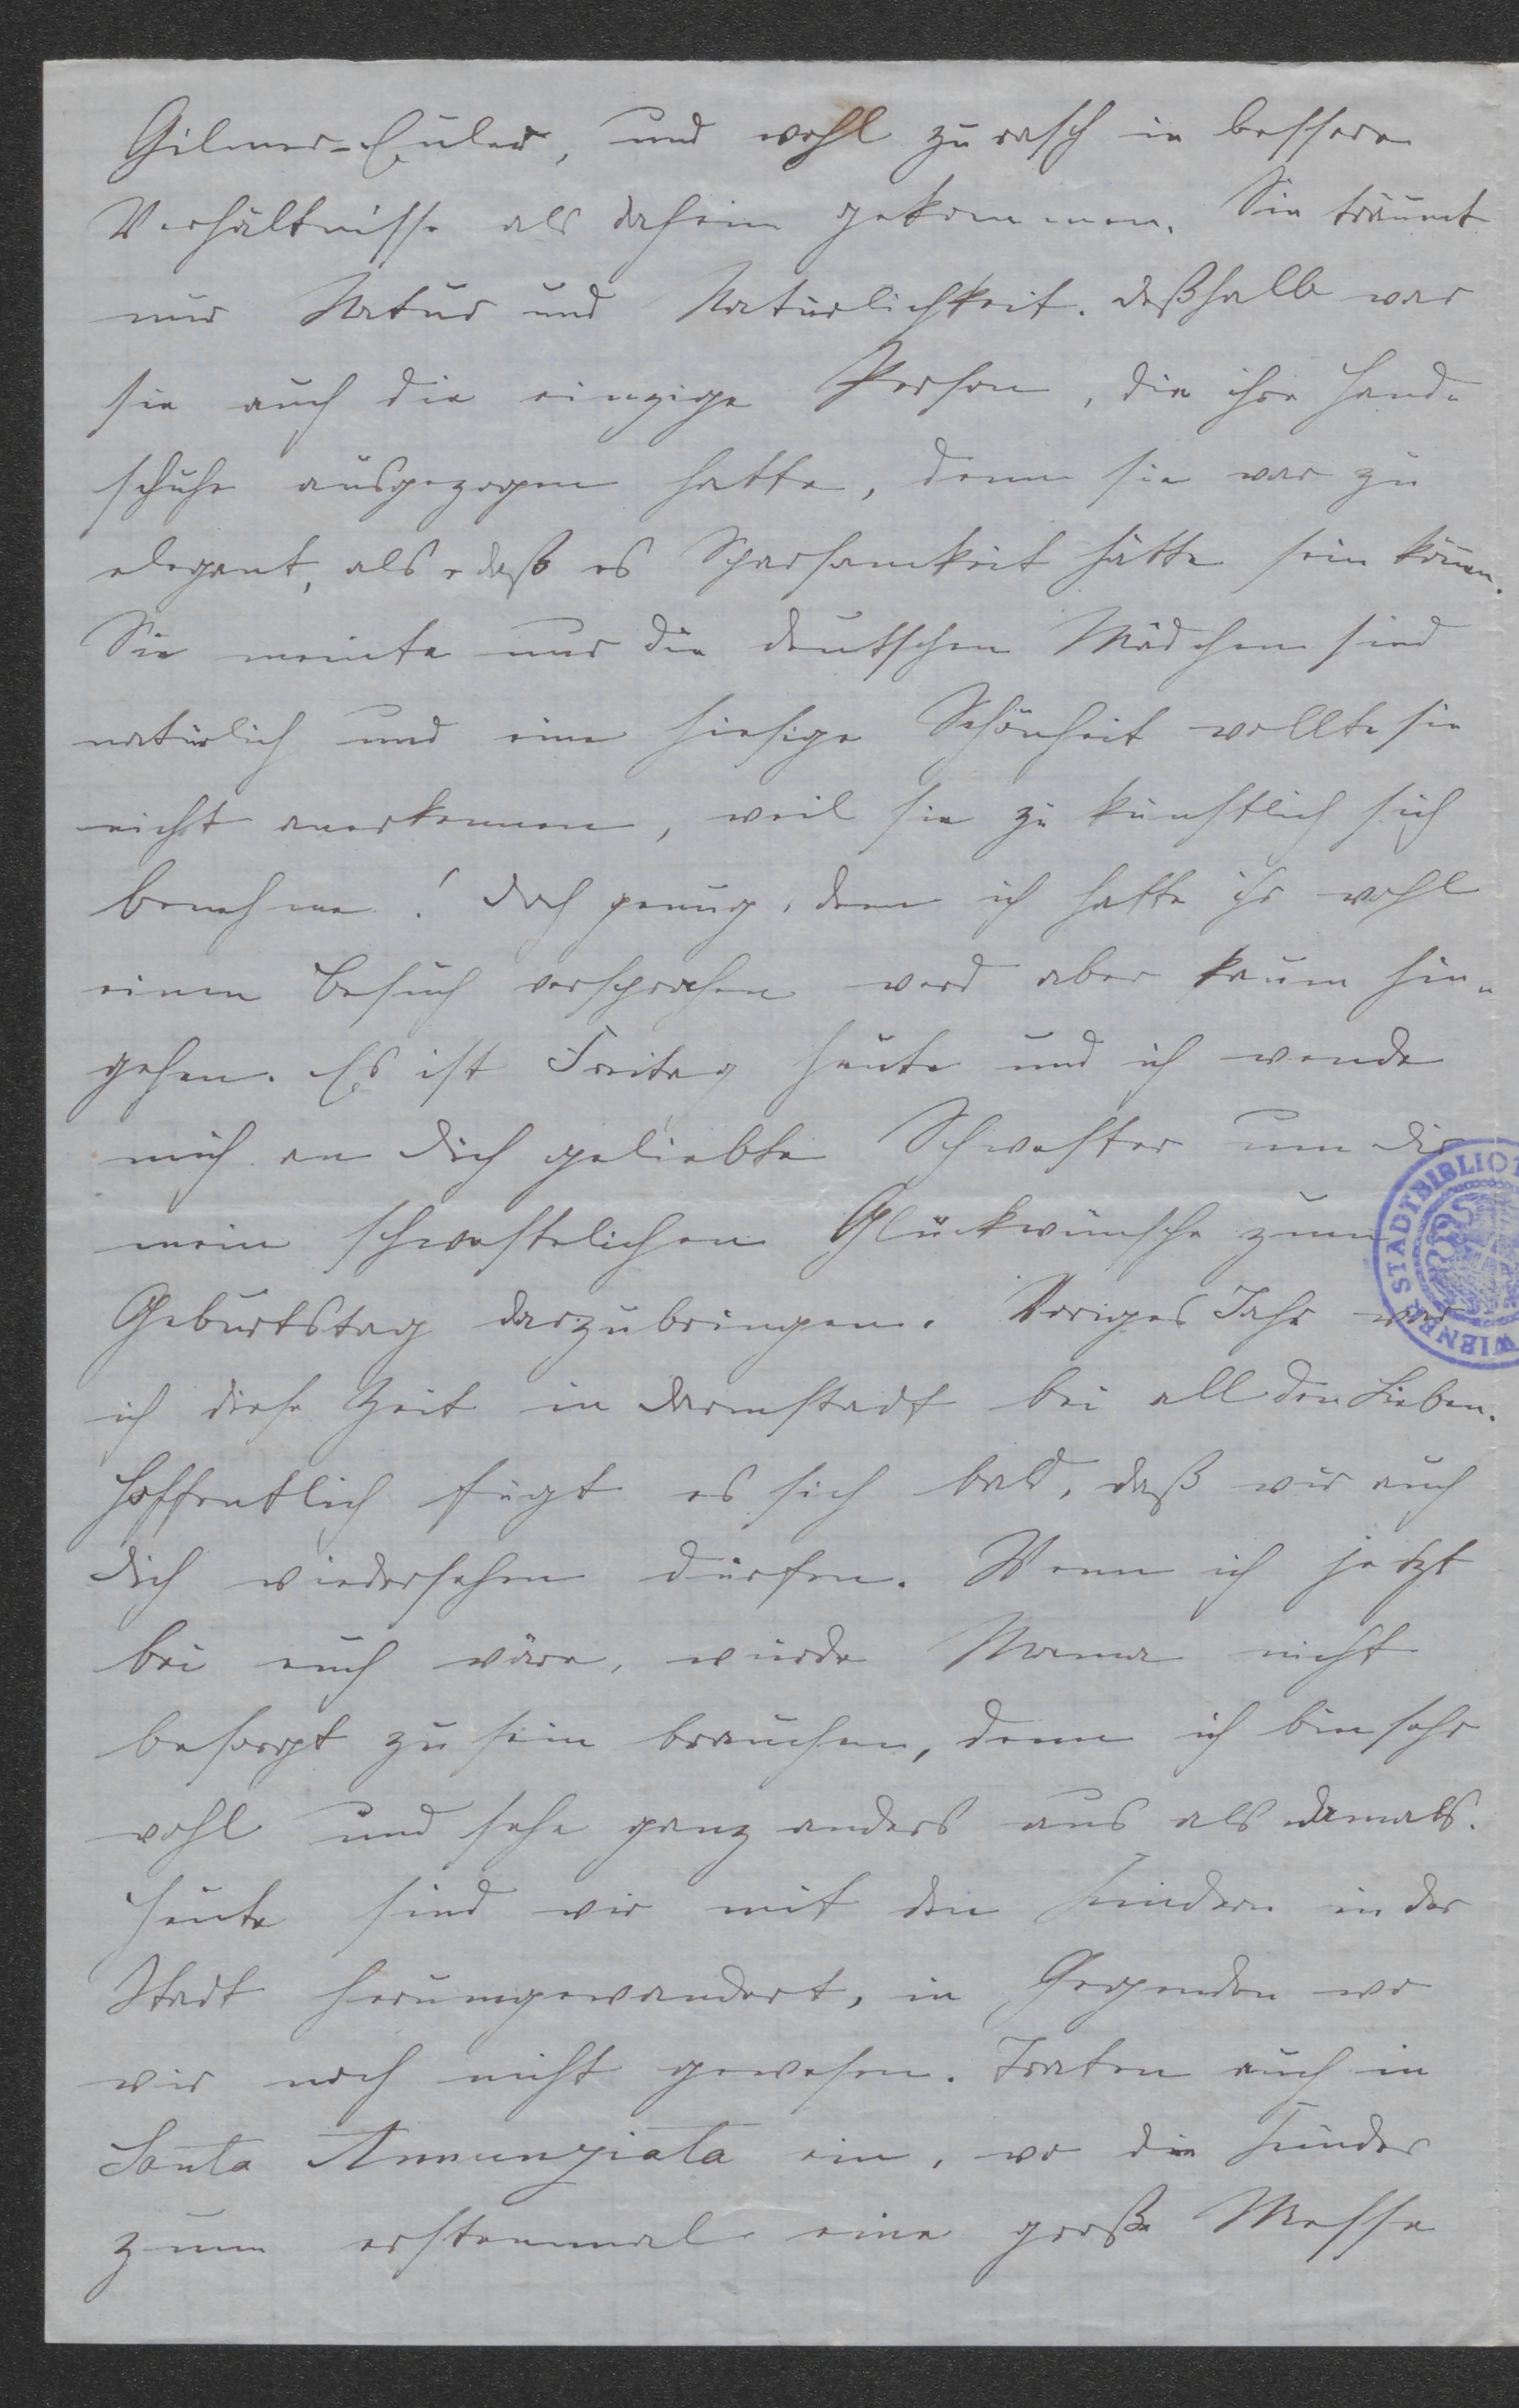 Gilmer-Euler, und wohl zu rasch in bessere
Verhältnisse als daheim gekommen. Sie träumt
nur Natur und Natürlichkeit. deßhalb war
sie auch die einzige Person, die ihre Hand-
schuhe ausgezogen hatte, denn sie war zu
elegant, als daß es Sparsamkeit hätte sein können.
Sie meinte nur die deutschen Mädchen sind
natürlich und eine hiesige Schönheit wollte sie
nicht anerkennen, weil sie zu künstlich sich
benehme! Doch genug, denn ich hatte ihr wohl
einen Besuch versprochen werd aber kaum hin-
gehen. Es ist Freitag heute und ich wende
mich an Dich geliebte Schwester um dir
mein schwesterlichen Glückwünsche zum
Geburtstag darzubringen. Voriges Jahr war
ich diese Zeit in Darmstadt bei all den Lieben.
Hoffentlich fügt es sich bald, daß wir auch
Dich wiedersehen dürfen. Wenn ich jetzt
bei euch wäre, würde Mama nicht
besorgt zu sein brauchen, denn ich bin sehr
wohl und sehe ganz anders aus als damals.
Heute sind wir mit den Kindern in der
Stadt herumgewandert, in Gegenden wo
wir noch nicht gewesen. Traten auch in
Santa Annunziata ein, wo die Kinder
zum erstenmal eine große Messe
WIENER STADTBIBLIOT